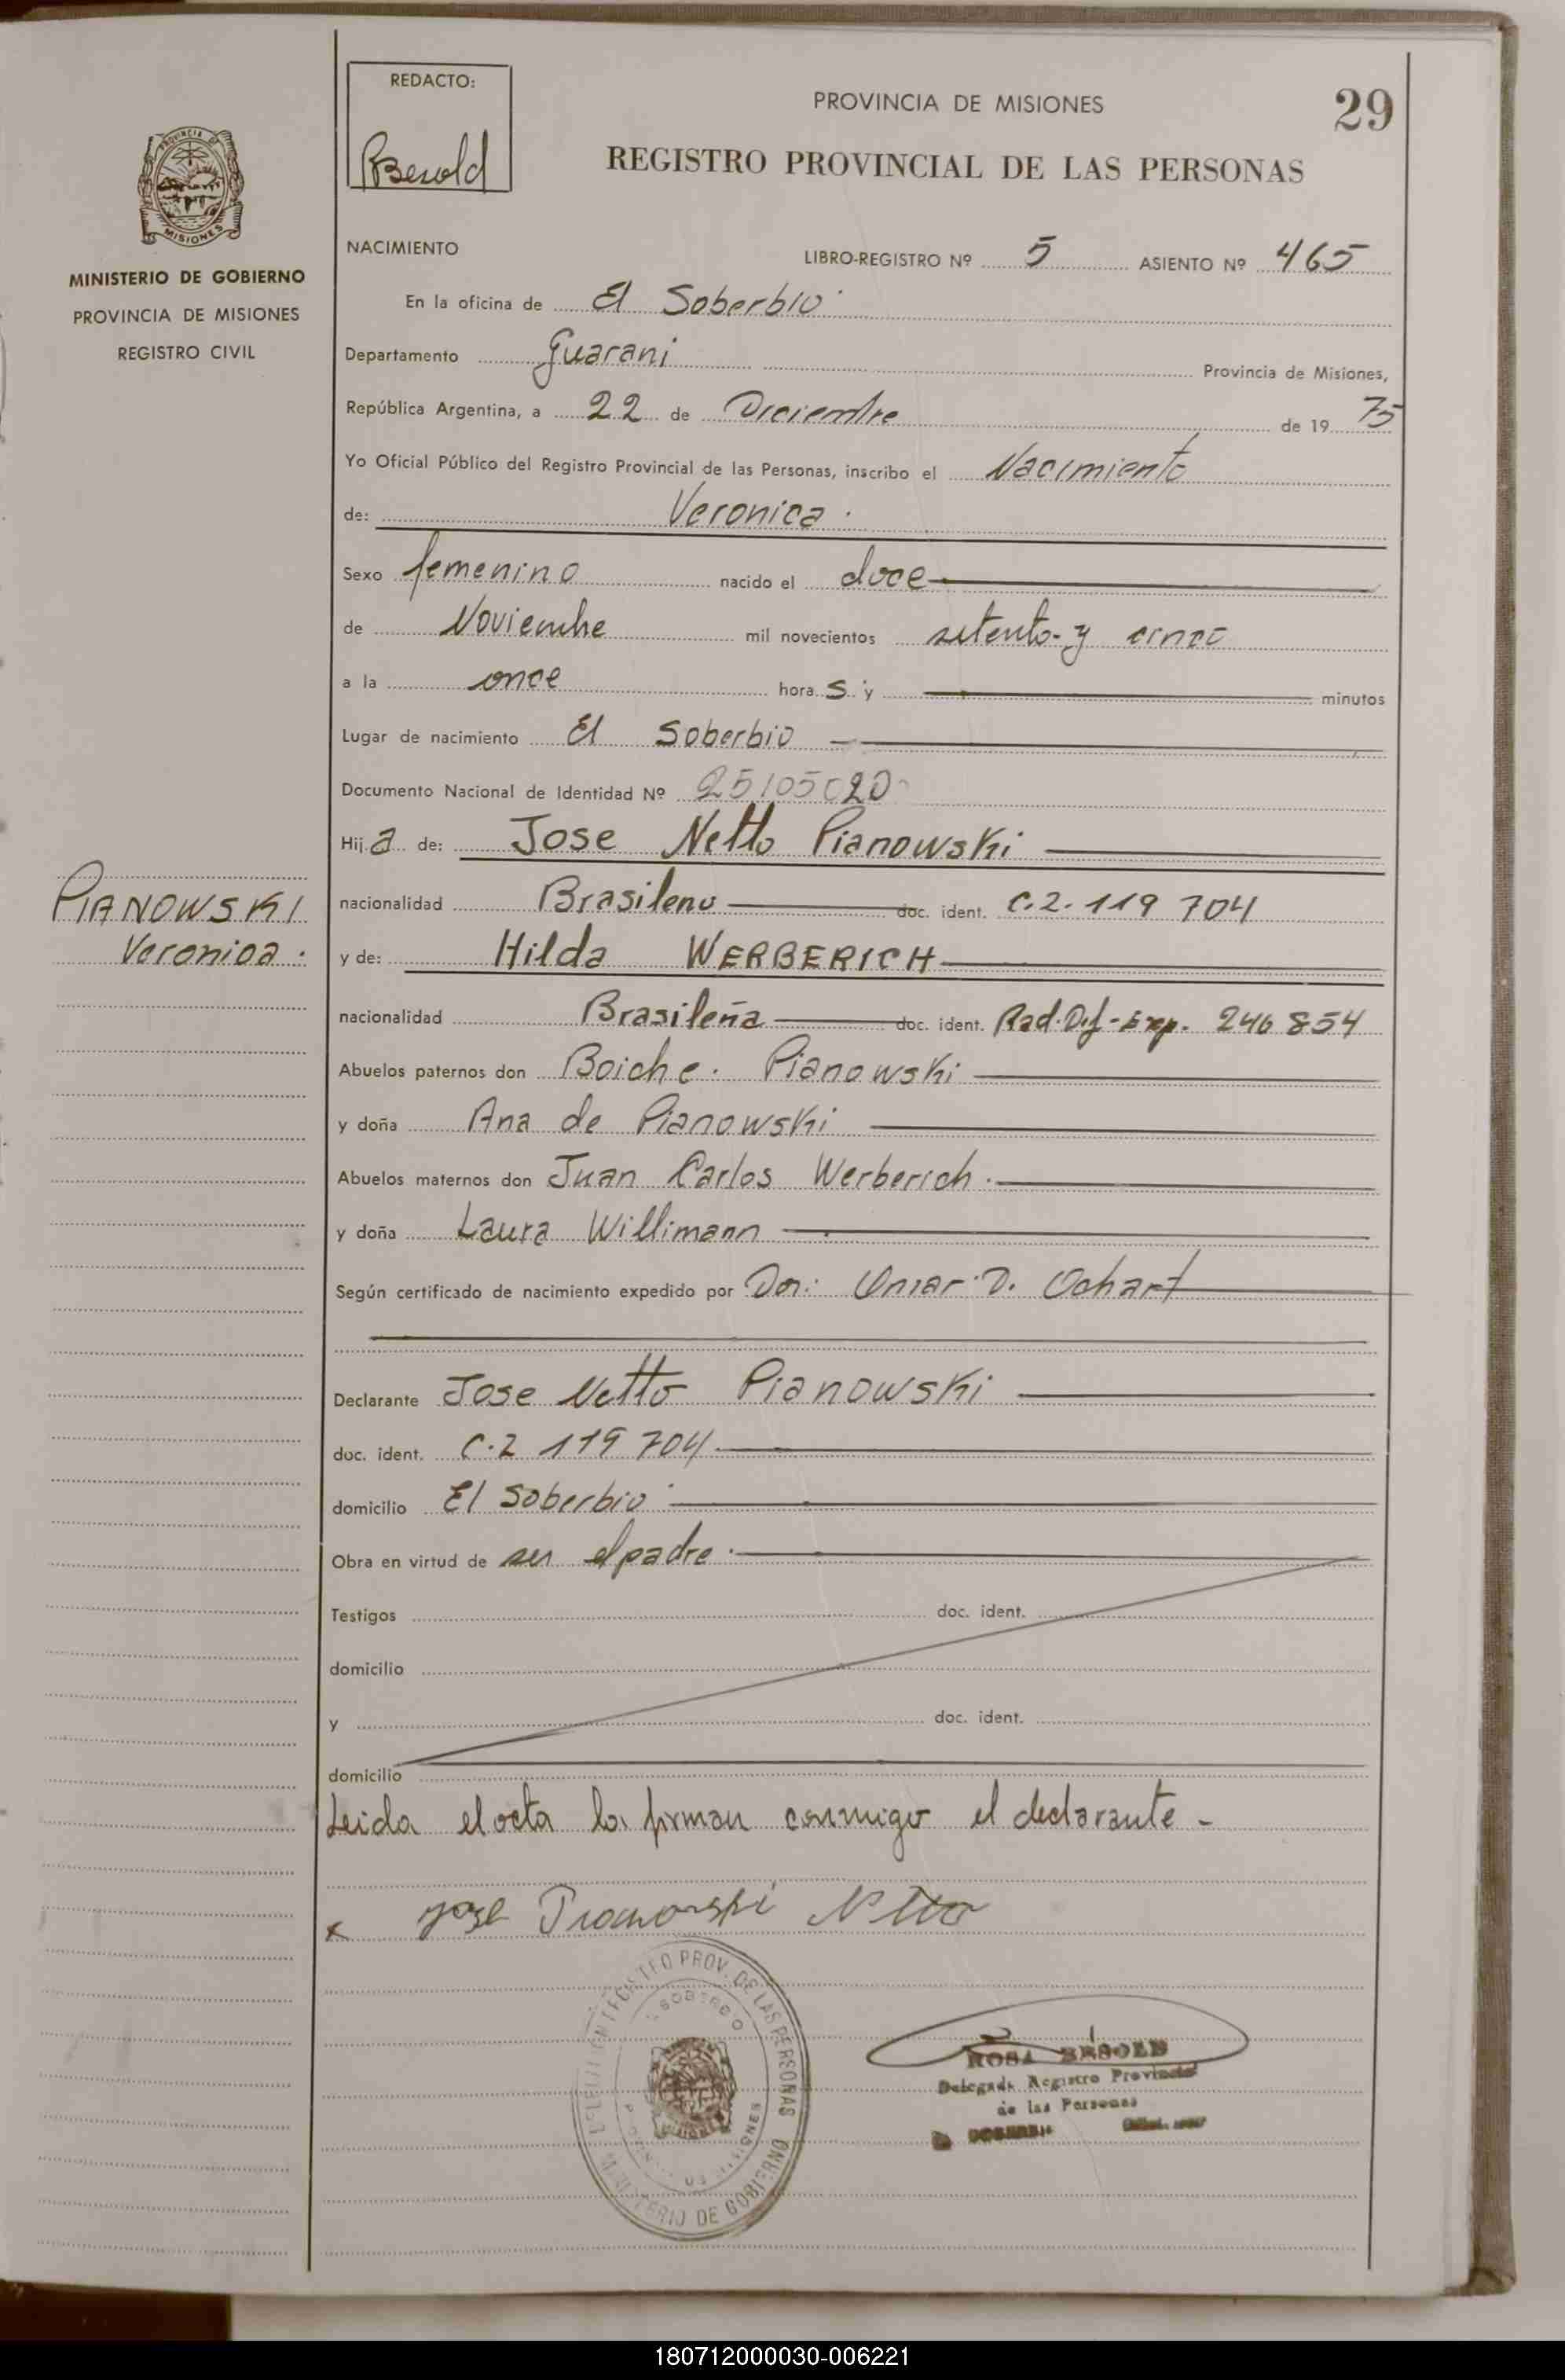 REDACTO:
Besold
PROVINCIA DE MISIONES
29
REGISTRO PROVINCIAL DE LAS PERSONAS
PROVINCIA DE MISIONES
MINISTERIO DE GOBIERNO
PROVINCIA DE MISIONES
REGISTRO CIVIL
NACIMIENTO LIBRO-REGISTRO Nº 5 ASIENTO Nº 465
En la oficina de El Soberbio
Departamento Guarani Provincia de Misiones,
República Argentina, a 22 de Diciembre de 19 75
Yo Oficial Público del Registro Provincial de las Personas, inscribo el Nacimiento
de: Veronica.
Sexo femenino nacido el doce
de Noviembre mil novecientos setenta y cinco
a la once hora s y minutos
Lugar de nacimiento El Soberbio
Documento Nacional de Identidad Nº 25105020
Hij a de: Jose Netto Pianowski
PIANOWSKI
Veronica.
nacionalidad Brasileno doc. ident. C.2.119 704
y de: Hilda WERBERICH
nacionalidad Brasileña doc. ident. Rad.Def-Exp. 246 854
Abuelos paternos don Boiche. Pianowski
y doña Ana de Pianowski
Abuelos maternos don Juan Carlos Werberich.
y doña Laura Willimann
Según certificado de nacimiento expedido por Don: Omar D. Ochart
Declarante Jose Netto Pianowski
doc. ident. C.2 119 704
domicilio El Soberbio
Obra en virtud de ser el padre.
Testigos doc. ident.
domicilio
y doc. ident.
domicilio
Leida el acta la firman conmigo el declarante -
x Jose Pianowski Netto
REGISTRO PROV. DE LAS PERSONAS
SOBERBIO
MISIONES
MINISTERIO DE GOBIERNO
ROSA BESOLD
Delegada Registro Provincial
de las Personas
180712000030-006221